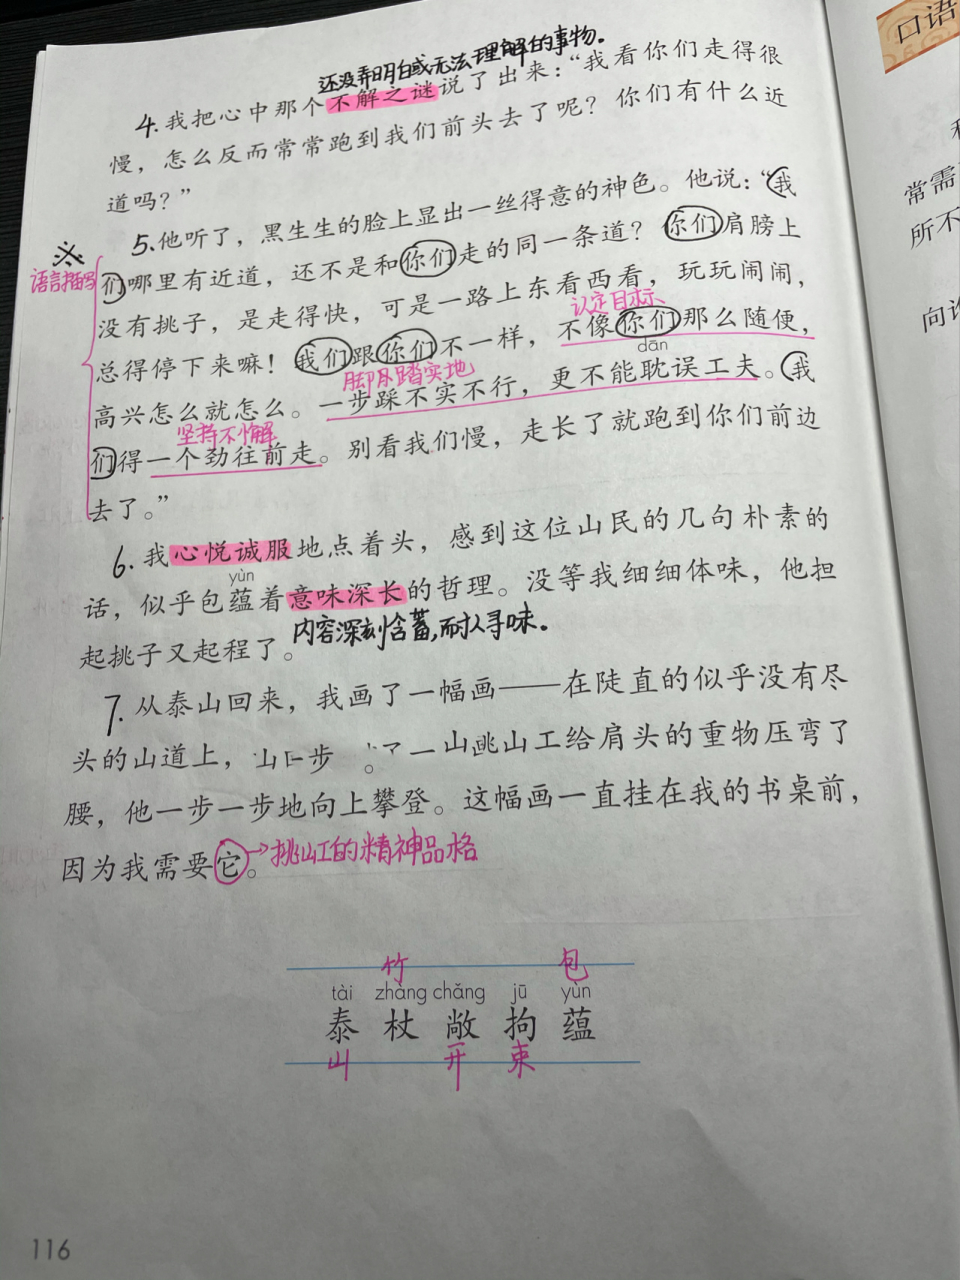 还没弄明白或无法理解的事物。
4.我把心中那个不解之谜说了出来：“我看你们走得很
慢，怎么反而常常跑到我们前头去了呢？你们有什么近
道吗？”
5.他听了，黑生生的脸上显出一丝得意的神色。他说：“我
语言描写
们哪里有近道，还不是和你们走的同一条道？你们肩膀上
没有挑子，是走得快，可是一路上东看西看，玩玩闹闹，
认定目标
总得停下来嘛！我们跟你们不一样，不像你们那么随便，
脚踏实地
dān
高兴怎么就怎么。一步踩不实不行，更不能耽误工夫。我
坚持不懈
们得一个劲往前走。别看我们慢，走长了就跑到你们前边
去了。”
6.我心悦诚服地点着头，感到这位山民的几句朴素的
yùn
话，似乎包蕴着意味深长的哲理。没等我细细体味，他担
起挑子又起程了。
内容深刻含蓄,耐人寻味。
7.从泰山回来，我画了一幅画——在陡直的似乎没有尽
头的山道上，山 步 。 了一山挑山工给肩头的重物压弯了
腰，他一步一步地向上攀登。这幅画一直挂在我的书桌前，
因为我需要它。→挑山工的精神品格
竹 包
tài zhàng chǎng jū yùn
泰 杖 敞 拘 蕴
山 开 束
116
口语
常需
所不
向